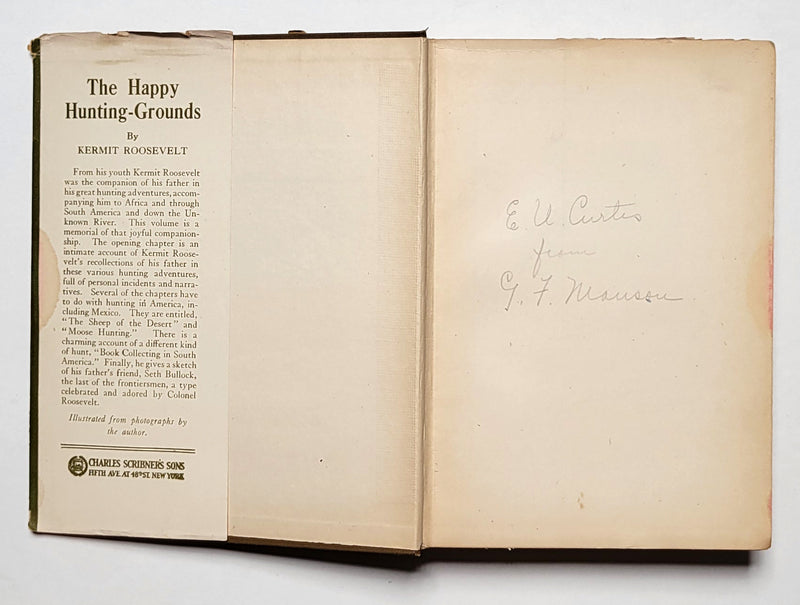 The Happy
Hunting-Grounds
By
KERMIT ROOSEVELT
From his youth Kermit Roosevelt
was the companion of his father in
his great hunting adventures, accom-
panying him to Africa and through
South America and down the Un-
known River. This volume is a
memorial of that joyful companion-
ship. The opening chapter is an
intimate account of Kermit Roose-
velt's recollections of his father in
these various hunting adventures,
full of personal incidents and narra-
tives. Several of the chapters have
to do with hunting in America, in-
cluding Mexico. They are entitled,
"The Sheep of the Desert" and
"Moose Hunting." There is a
charming account of a different kind
of hunt, "Book Collecting in South
America." Finally, he gives a sketch
of his father's friend, Seth Bullock,
the last of the frontiersmen, a type
celebrated and adored by Colonel
Roosevelt.
Illustrated from photographs by
the author.
CHARLES SCRIBNER'S SONS
FIFTH AVE. AT 48TH ST. NEW YORK
E. U. Curtis
from
G. F. Manson